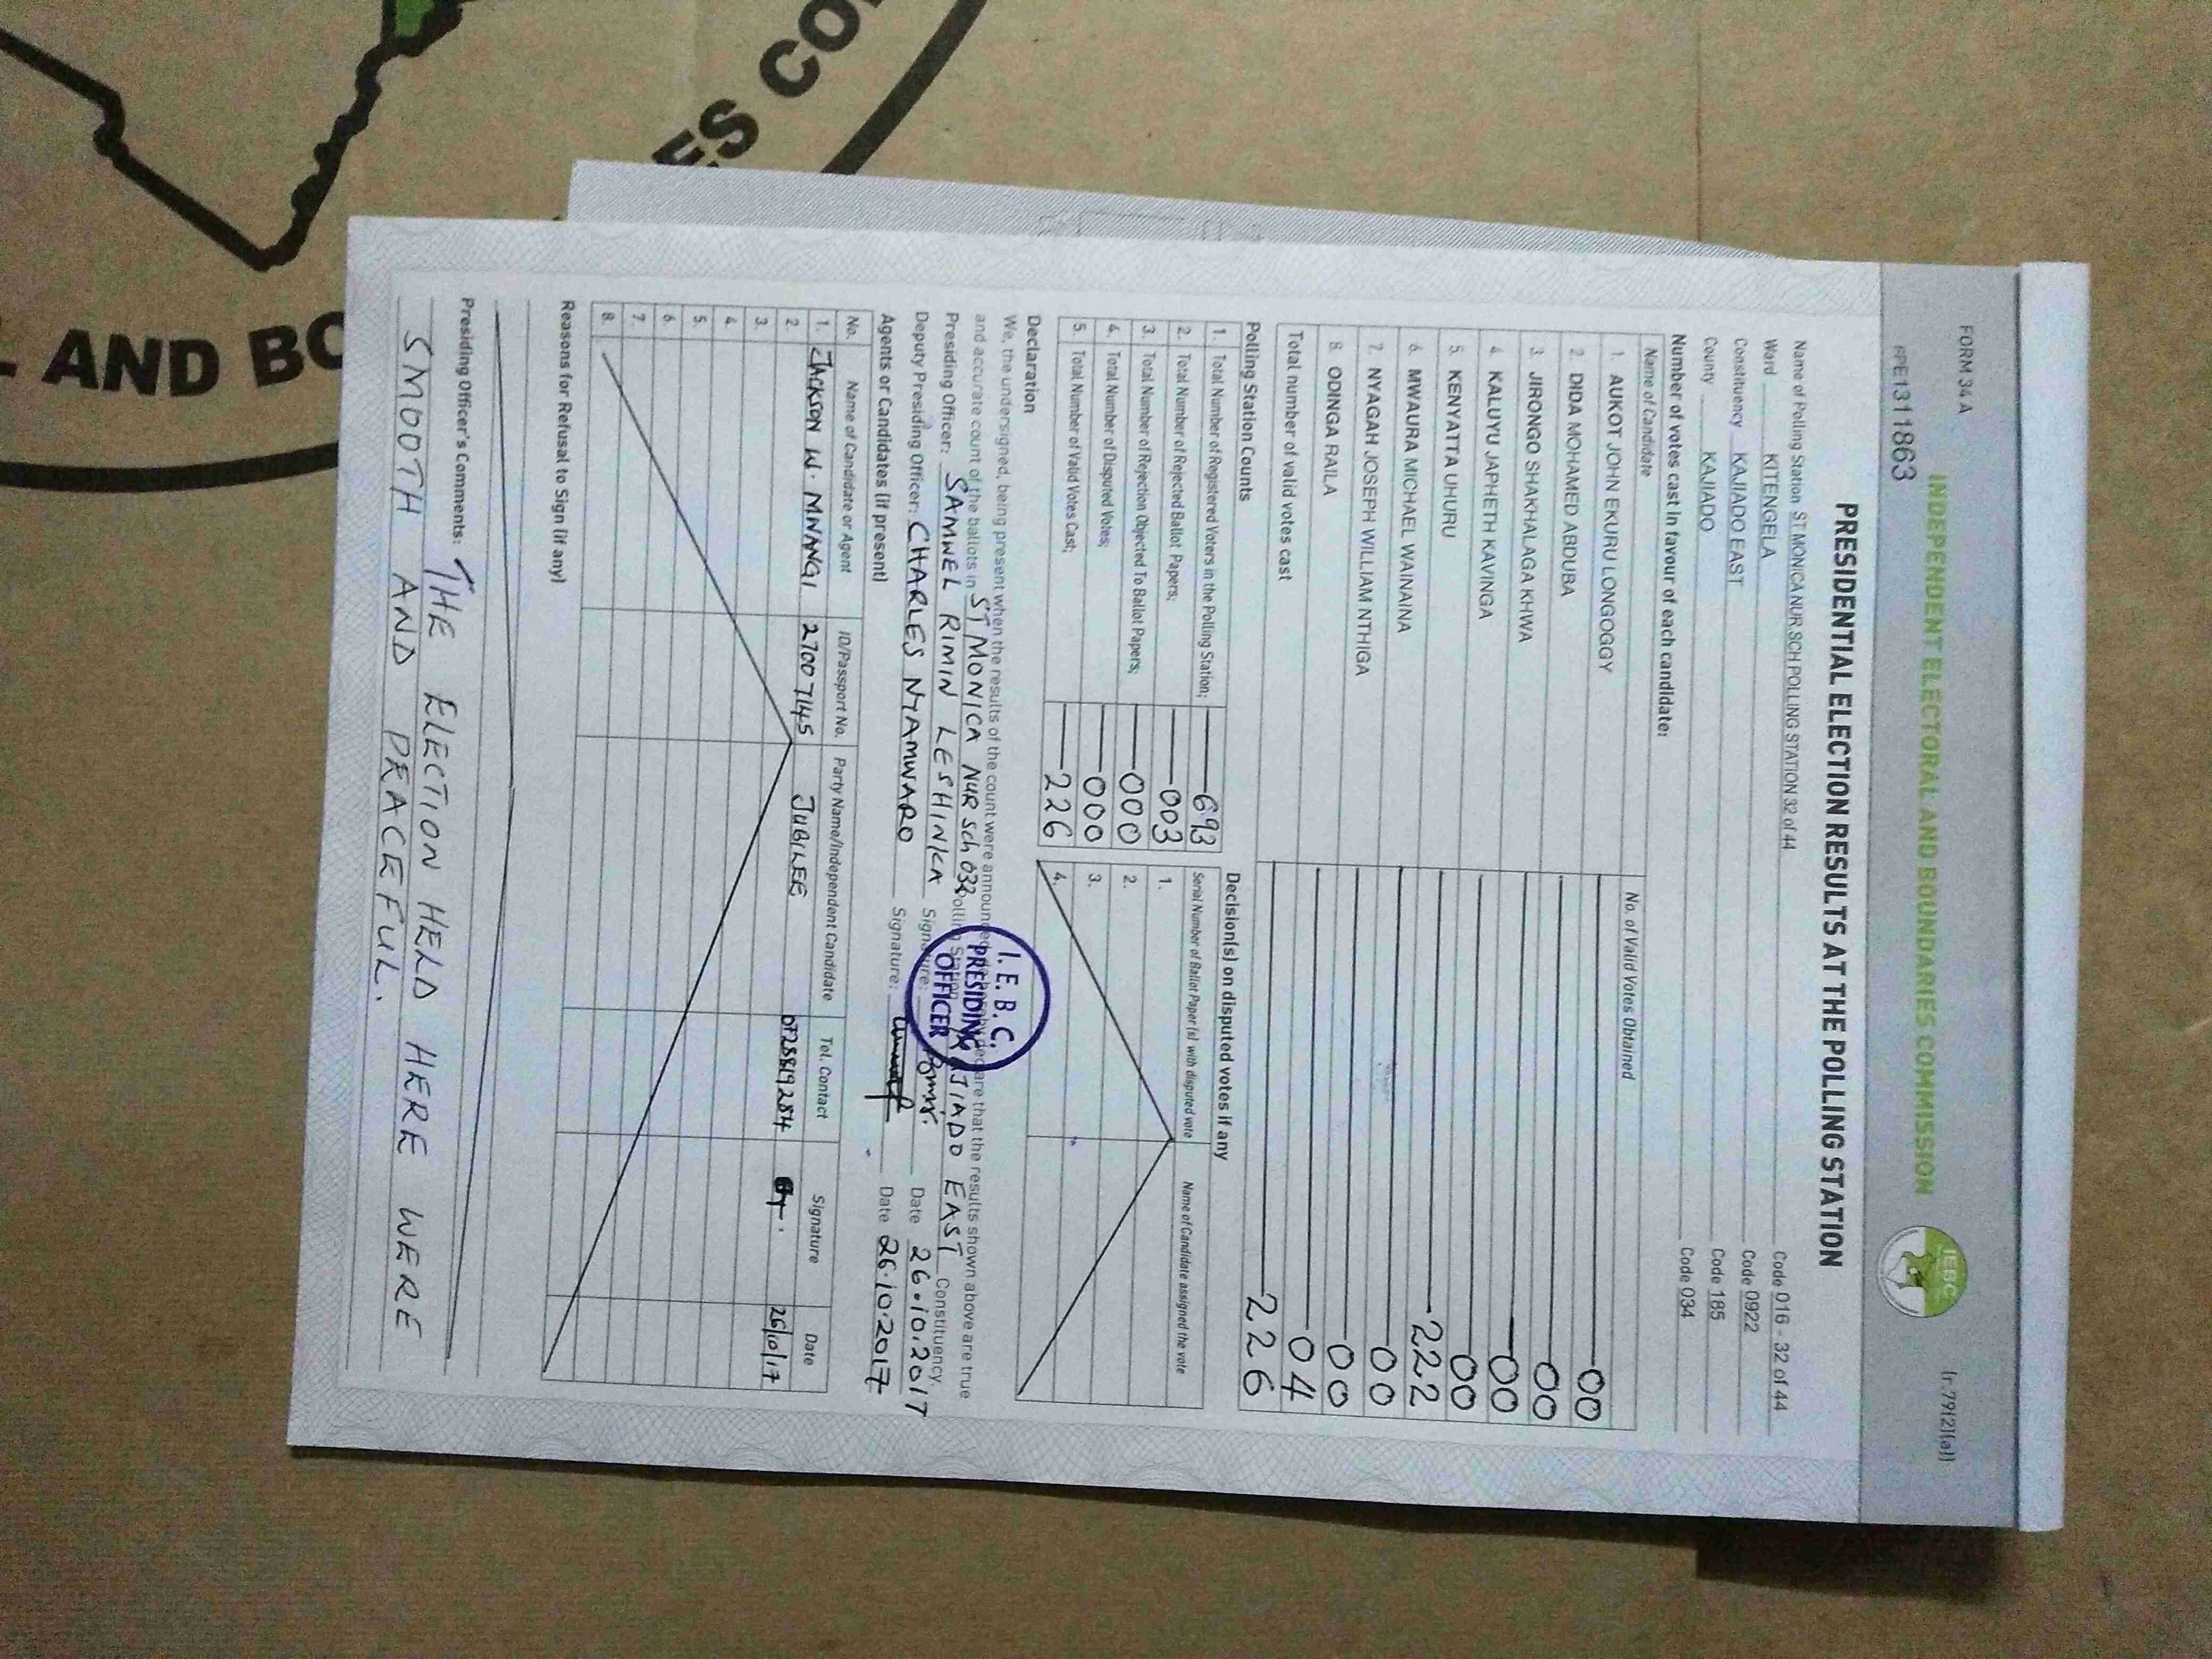 FORM 34 A
INDEPENDENT ELECTORAL AND BOUNDARIES COMMISSION
IEBC
(r.79(2)(a))
PRE1311863
PRESIDENTIAL ELECTION RESULTS AT THE POLLING STATION
Name of Polling Station ST MONICA NUR SCH POLLING STATION 32 of 44 Code 016 - 32 of 44
Ward KITENGELA Code 0922
Constituency KAJIADO EAST Code 185
County KAJIADO Code 034
Number of votes cast in favour of each candidate:
Name of Candidate No. of Valid Votes Obtained
1. AUKOT JOHN EKURU LONGOGGY 00
2. DIDA MOHAMED ABDUBA 00
3. JIRONGO SHAKHALAGA KHWA 00
4. KALUYU JAPHETH KAVINGA 00
5. KENYATTA UHURU 222
6. MWAURA MICHAEL WAINAINA 00
7. NYAGAH JOSEPH WILLIAM NTHIGA 00
8. ODINGA RAILA 04
Total number of valid votes cast 226
Polling Station Counts
1. Total Number of Registered Voters in the Polling Station; 693
2. Total Number of Rejected Ballot Papers; 003
3. Total Number of Rejection Objected To Ballot Papers; 000
4. Total Number of Disputed Votes; 000
5. Total Number of Valid Votes Cast; 226
Decision(s) on disputed votes if any
Serial Number of Ballot Paper (s) with disputed vote Name of Candidate assigned the vote
1.
2.
3.
4.
Declaration
We, the undersigned, being present when the results of the count were announced, do hereby declare that the results shown above are true
and accurate count of the ballots in ST MONICA NUR Sch 032 Polling Station KAJIADO EAST Constituency.
Presiding Officer: SAMWEL RIMIN LESHINKA Signature: Date 26.10.2017
Deputy Presiding Officer: CHARLES NYAMWARO Signature: Date 26.10.2017
I.E.B.C.
PRESIDING
OFFICER
Agents or Candidates (if present)
No. Name of Candidate or Agent ID/Passport No. Party Name/Independent Candidate Tel. Contact Signature Date
1. JACKSON W. MNANGI 27007145 JUBILEE 0728819284 26/10/17
2.
3.
4.
5.
6.
7.
8.
Reasons for Refusal to Sign (if any)
Presiding Officer's Comments: THE ELECTION HELD HERE WERE
SMOOTH AND PEACEFUL.
ES CO
AND BO